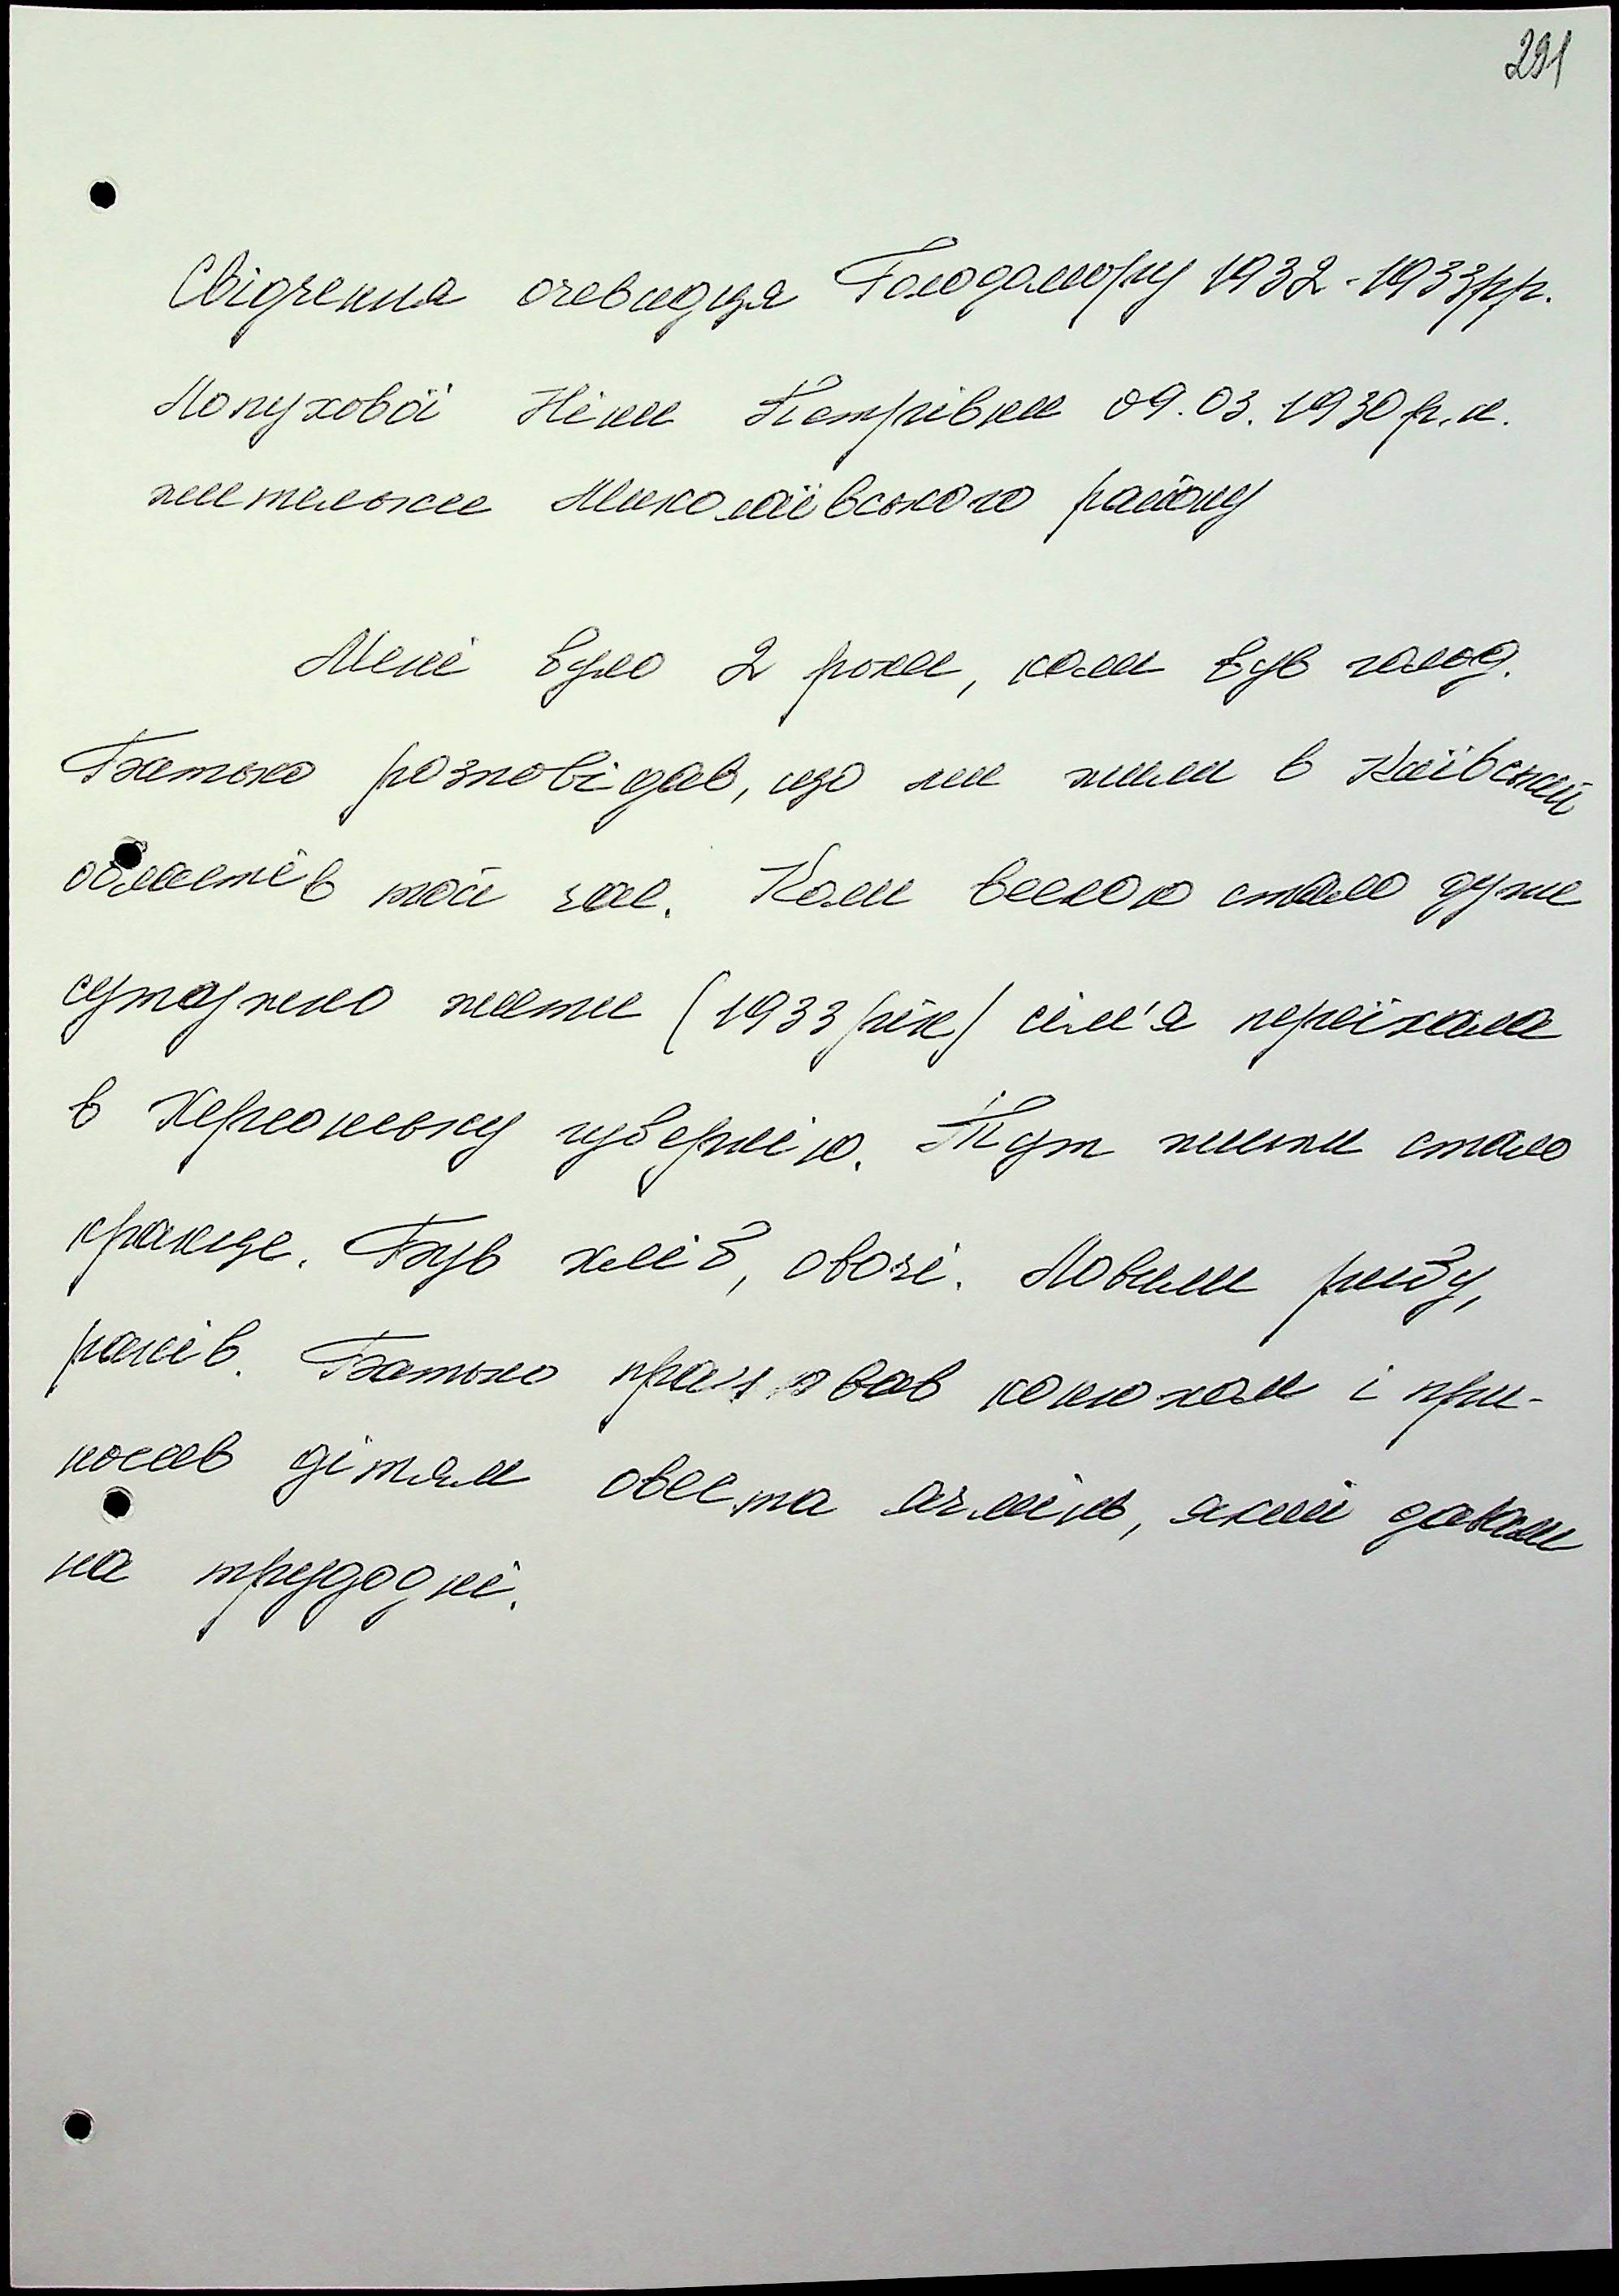 291
Свідчення очевидця Голодомору 1932-1933рр.
Лопухової Ніни Петрівни 09.03.1930 р.н.
жительки Миколаївського району
Мені було 2 роки, коли був голод.
Батько розповідав, що ми жили в Київській
області в той час. Коли весною стало дуже
сутужно жити (1933 рік) сім'я переїхала
в Херсонську губернію. Тут жити стало
краще. Був хліб, овочі. Ловили рибу,
раків. Батько працював конюхом і при-
носив дітям овес та ячмінь, який давали
на трудодні.